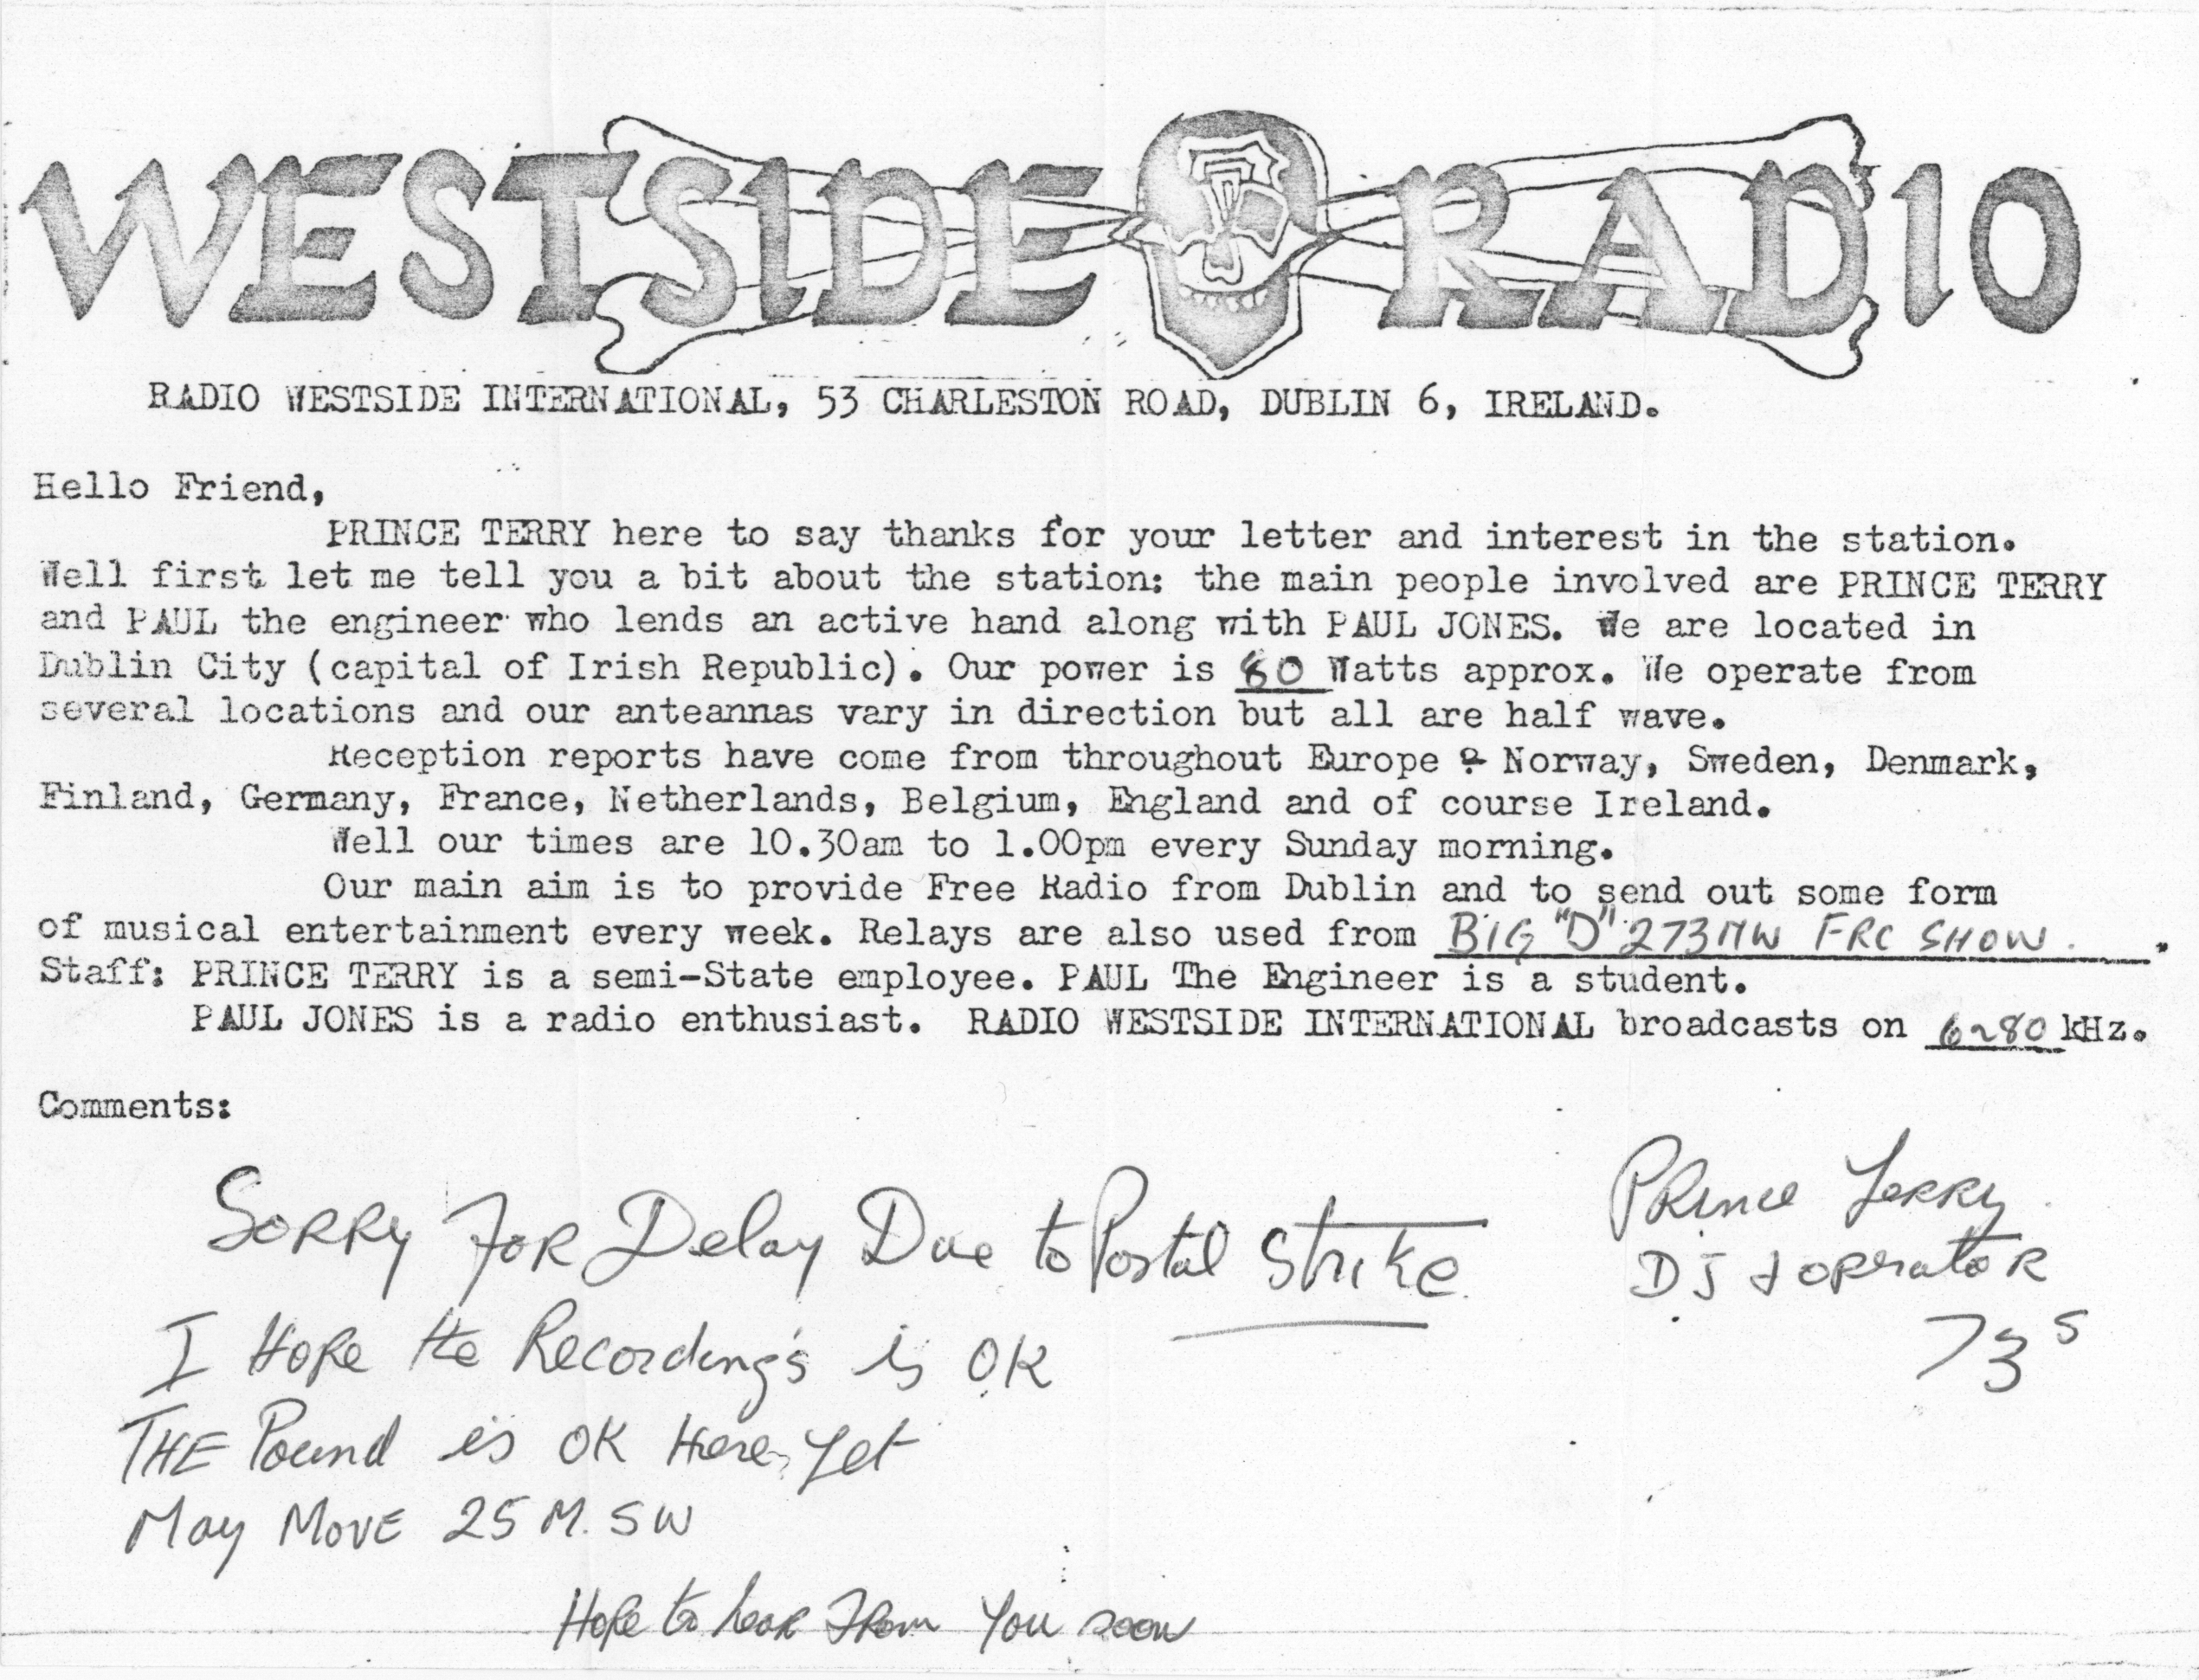 WESTSIDE RADIO
RADIO WESTSIDE INTERNATIONAL, 53 CHARLESTON ROAD, DUBLIN 6, IRELAND.
Hello Friend,
PRINCE TERRY here to say thanks for your letter and interest in the station.
Well first let me tell you a bit about the station: the main people involved are PRINCE TERRY
and PAUL the engineer who lends an active hand along with PAUL JONES. We are located in
Dublin City (capital of Irish Republic). Our power is 80 Watts approx. We operate from
several locations and our anteannas vary in direction but all are half wave.
Reception reports have come from throughout Europe - Norway, Sweden, Denmark,
Finland, Germany, France, Netherlands, Belgium, England and of course Ireland.
Well our times are 10.30am to 1.00pm every Sunday morning.
Our main aim is to provide Free Radio from Dublin and to send out some form
of musical entertainment every week. Relays are also used from BIG "D" 273MW FRC SHOW.
Staff: PRINCE TERRY is a semi-State employee. PAUL The Engineer is a student.
PAUL JONES is a radio enthusiast. RADIO WESTSIDE INTERNATIONAL broadcasts on 6280 kHz.
Comments:
Sorry For Delay Due to Postal Strike
Prince Terry
DJ + operator
73s
I Hope the Recording's is OK
THE Pound is OK Here, Yet
May Move 25 M. SW
Hope to hear From You soon